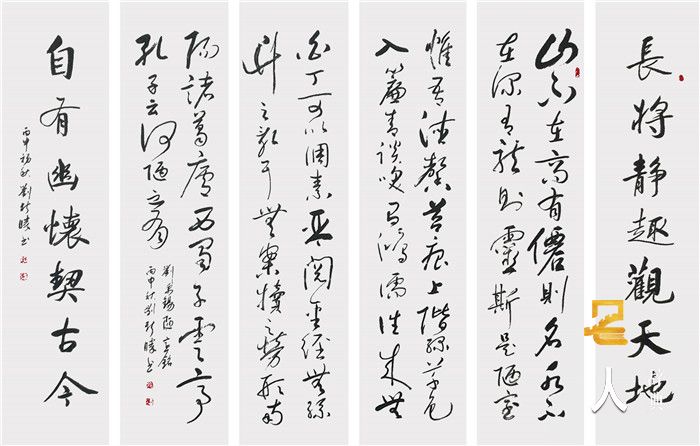 長將靜趣觀天地
山不在高有僊則名水不
在深有龍則靈斯是陋室
惟吾德馨苔痕上階綠草色
入簾青談笑有鴻儒往來無
白丁可以調素琴閱金經無絲
竹之亂耳無案牘之勞形南
陽諸葛廬西蜀子雲亭
孔子云何陋之有
劉禹錫陋室銘
丙申秋劉書
自有幽懷契古今
丙申初秋劉書
人